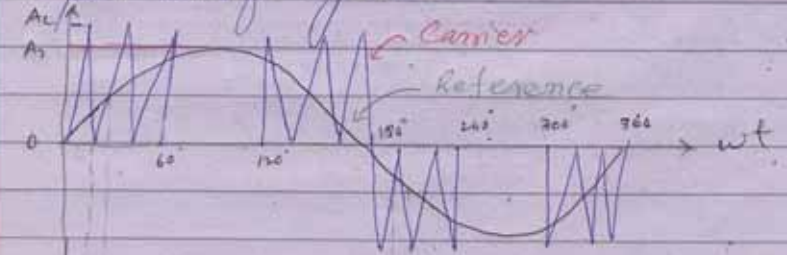 Ac
Carrier
Ar
Reference
0
60°
120°
180°
240°
300°
360
wt